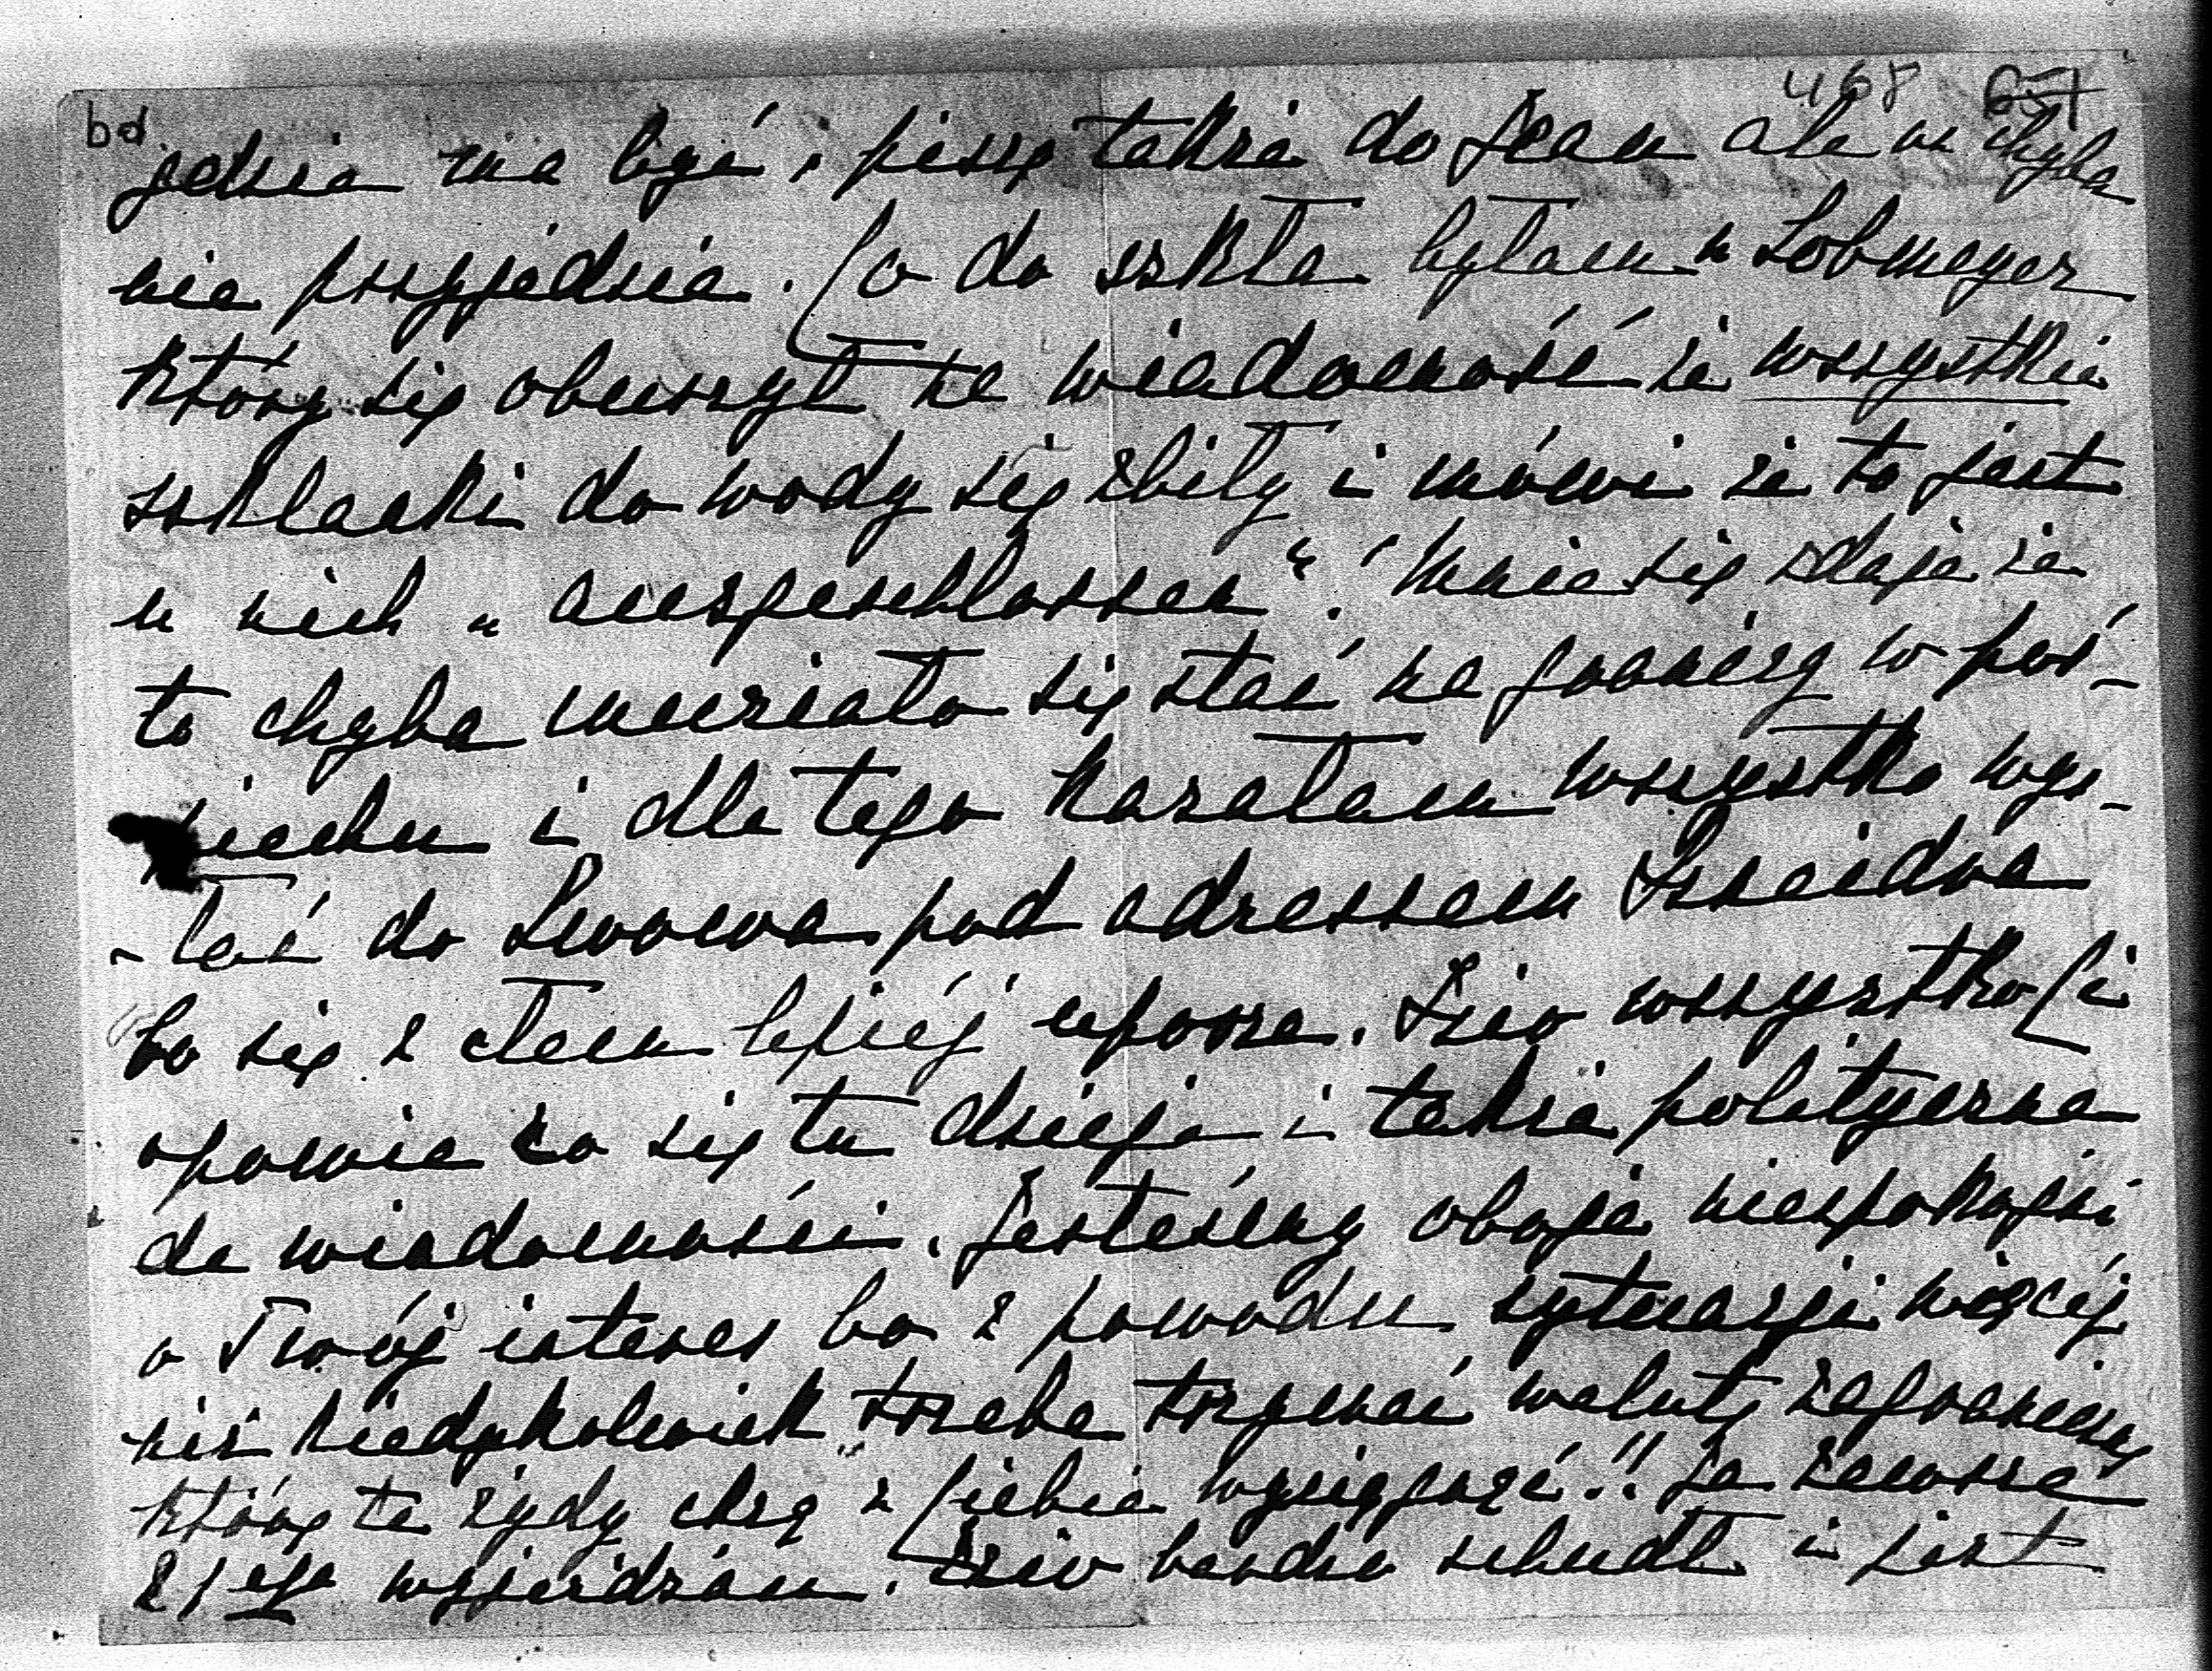 bd.
468 651
jedzie ma być, piszę także do Jean ale on chyba
nie przyjedzie. Co do szkła byłam u Lobmeyer
który się oburzył na wiadomość że wszystkie
szklanki do wody się zbiły i mówi że to jest
u nich „ausgeschlossen". Mnie się zdaje że
to chyba musiało się stać na granicy w poś-
piechu i dla tego kazałam wszystko wys-
-łać do Lwowa pod adressem Schneidra
bo się z cłem lepiéj upora. Izio wszystko Ci
opowie co się tu dzieje i także polityczne
da wiadomości. Jesteśmy oboje niespokojni
o Twój interes bo z powodu sytuacyi więcéj
niż kiedykolwiek trzeba trzymać walutę zagraniczną
którą te żydy chcą z Ciebie wyciągnąć!! Ja zawsze
21go wyjeżdżam. Izio bardzo schudł i jest